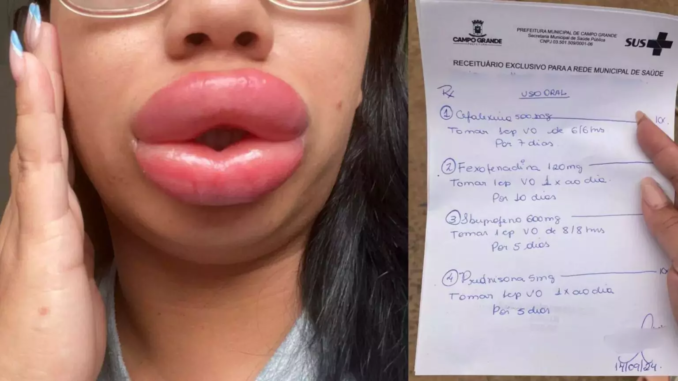 CAMPO GRANDE
PREFEITURA MUNICIPAL DE CAMPO GRANDE
Secretaria Municipal de Saúde Pública
SUS
RECEITUÁRIO EXCLUSIVO PARA A REDE MUNICIPAL DE SAÚDE
Rx USO ORAL
① Cefalexina 500mg
Tomar 1cp VO de 6/6hs
Por 7 dias
② Fexofenadina 120mg
Tomar 1cp VO 1x ao dia
Por 10 dias
③ Ibuprofeno 600mg
Tomar 1cp VO de 8/8hs
Por 5 dias
④ Prednisona 5mg
Tomar 1cp VO 1x ao dia
Por 5 dias